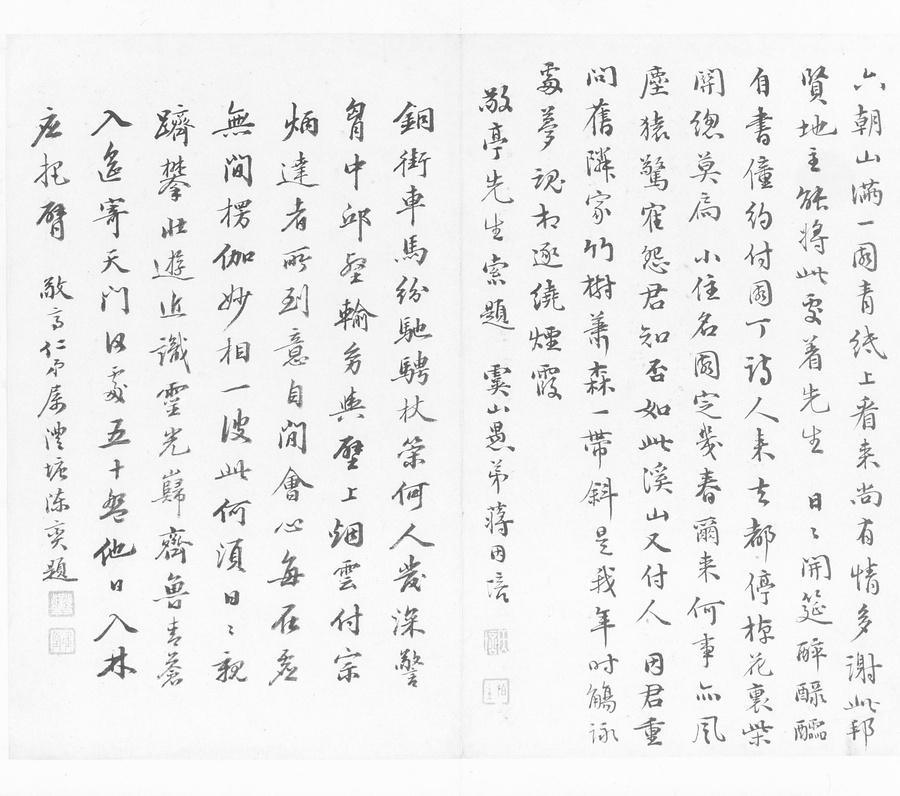 六朝山滿一園青紙上看来尚有情多謝此邦
賢地主能將此處着先生 日〻開筵醉醁醽
自書僮約付園丁詩人来去都停棹花裏柴
關總莫扃 小住名園定幾春爾来何事亦風
塵猿驚寉怨君知否如此溪山又付人 因君重
問舊隣家竹樹蕭森一帶斜是我年时觴詠
處夢魂相逐繞煙霞
敬亭先生索題 虞山愚弟蔣因培
銅街車馬紛馳騁杖策何人發深警
胷中邱壑輸多與壁上烟雲付宗
炳達者所到意自閒會心每在
無間楞伽妙相一彼此何須日〻親
躋攀壯遊近識靈光巋齊魯青蒼
入遙寄天門日處五十盤他日入林
應把臂 敬亭仁兄屬澧塘陳奕題